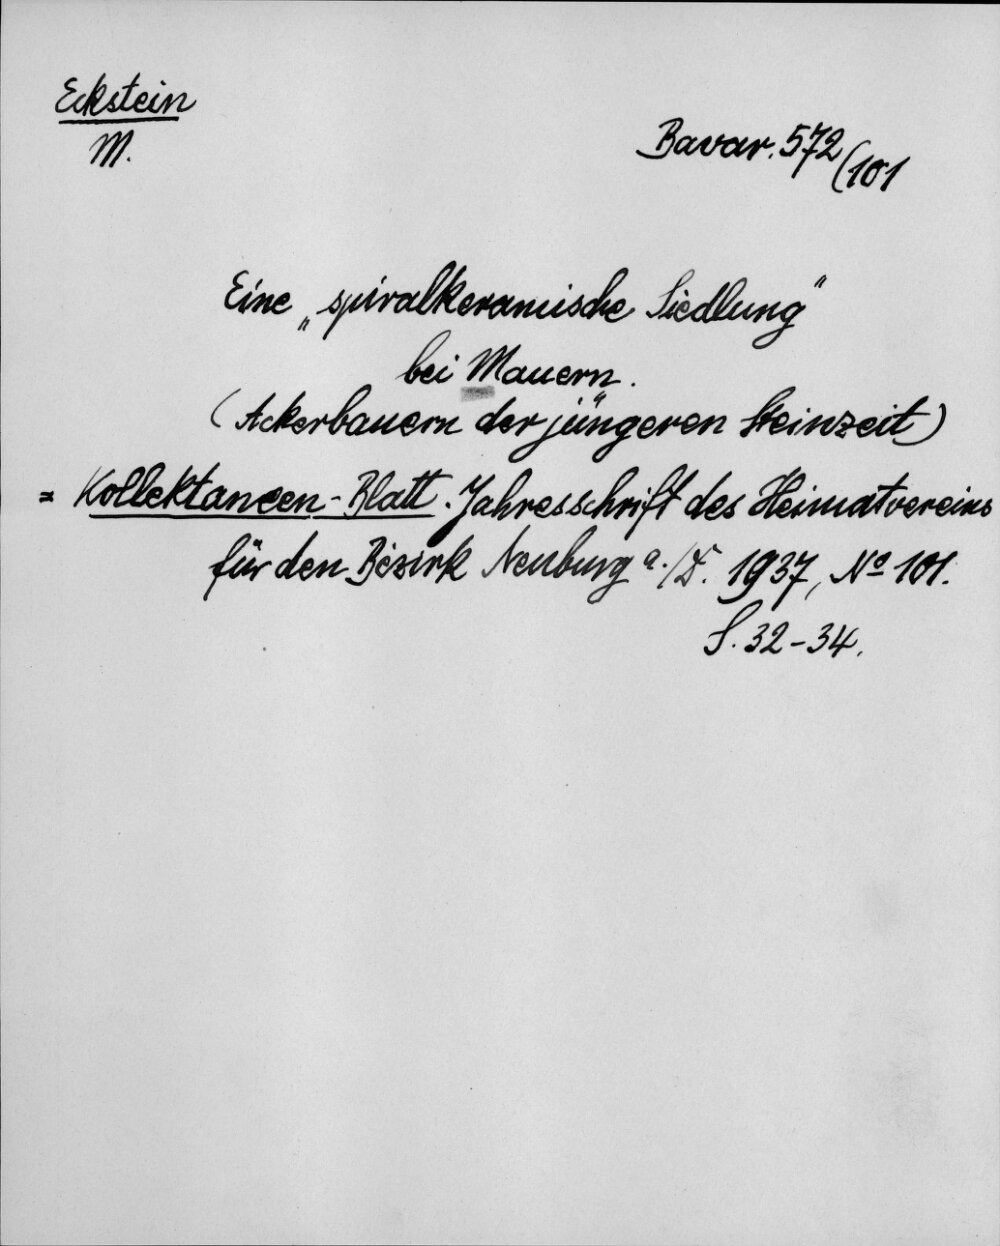 Eckstein
M.
Bavar. 572/(101
Eine „spiralkeramische Siedlung"
bei Mauern.
(Ackerbauern der jüngeren Steinzeit)
= Kollektaneen-Blatt. Jahresschrift des Heimatvereins
für den Bezirk Neuburg a./D. 1937, No 101.
S. 32-34.